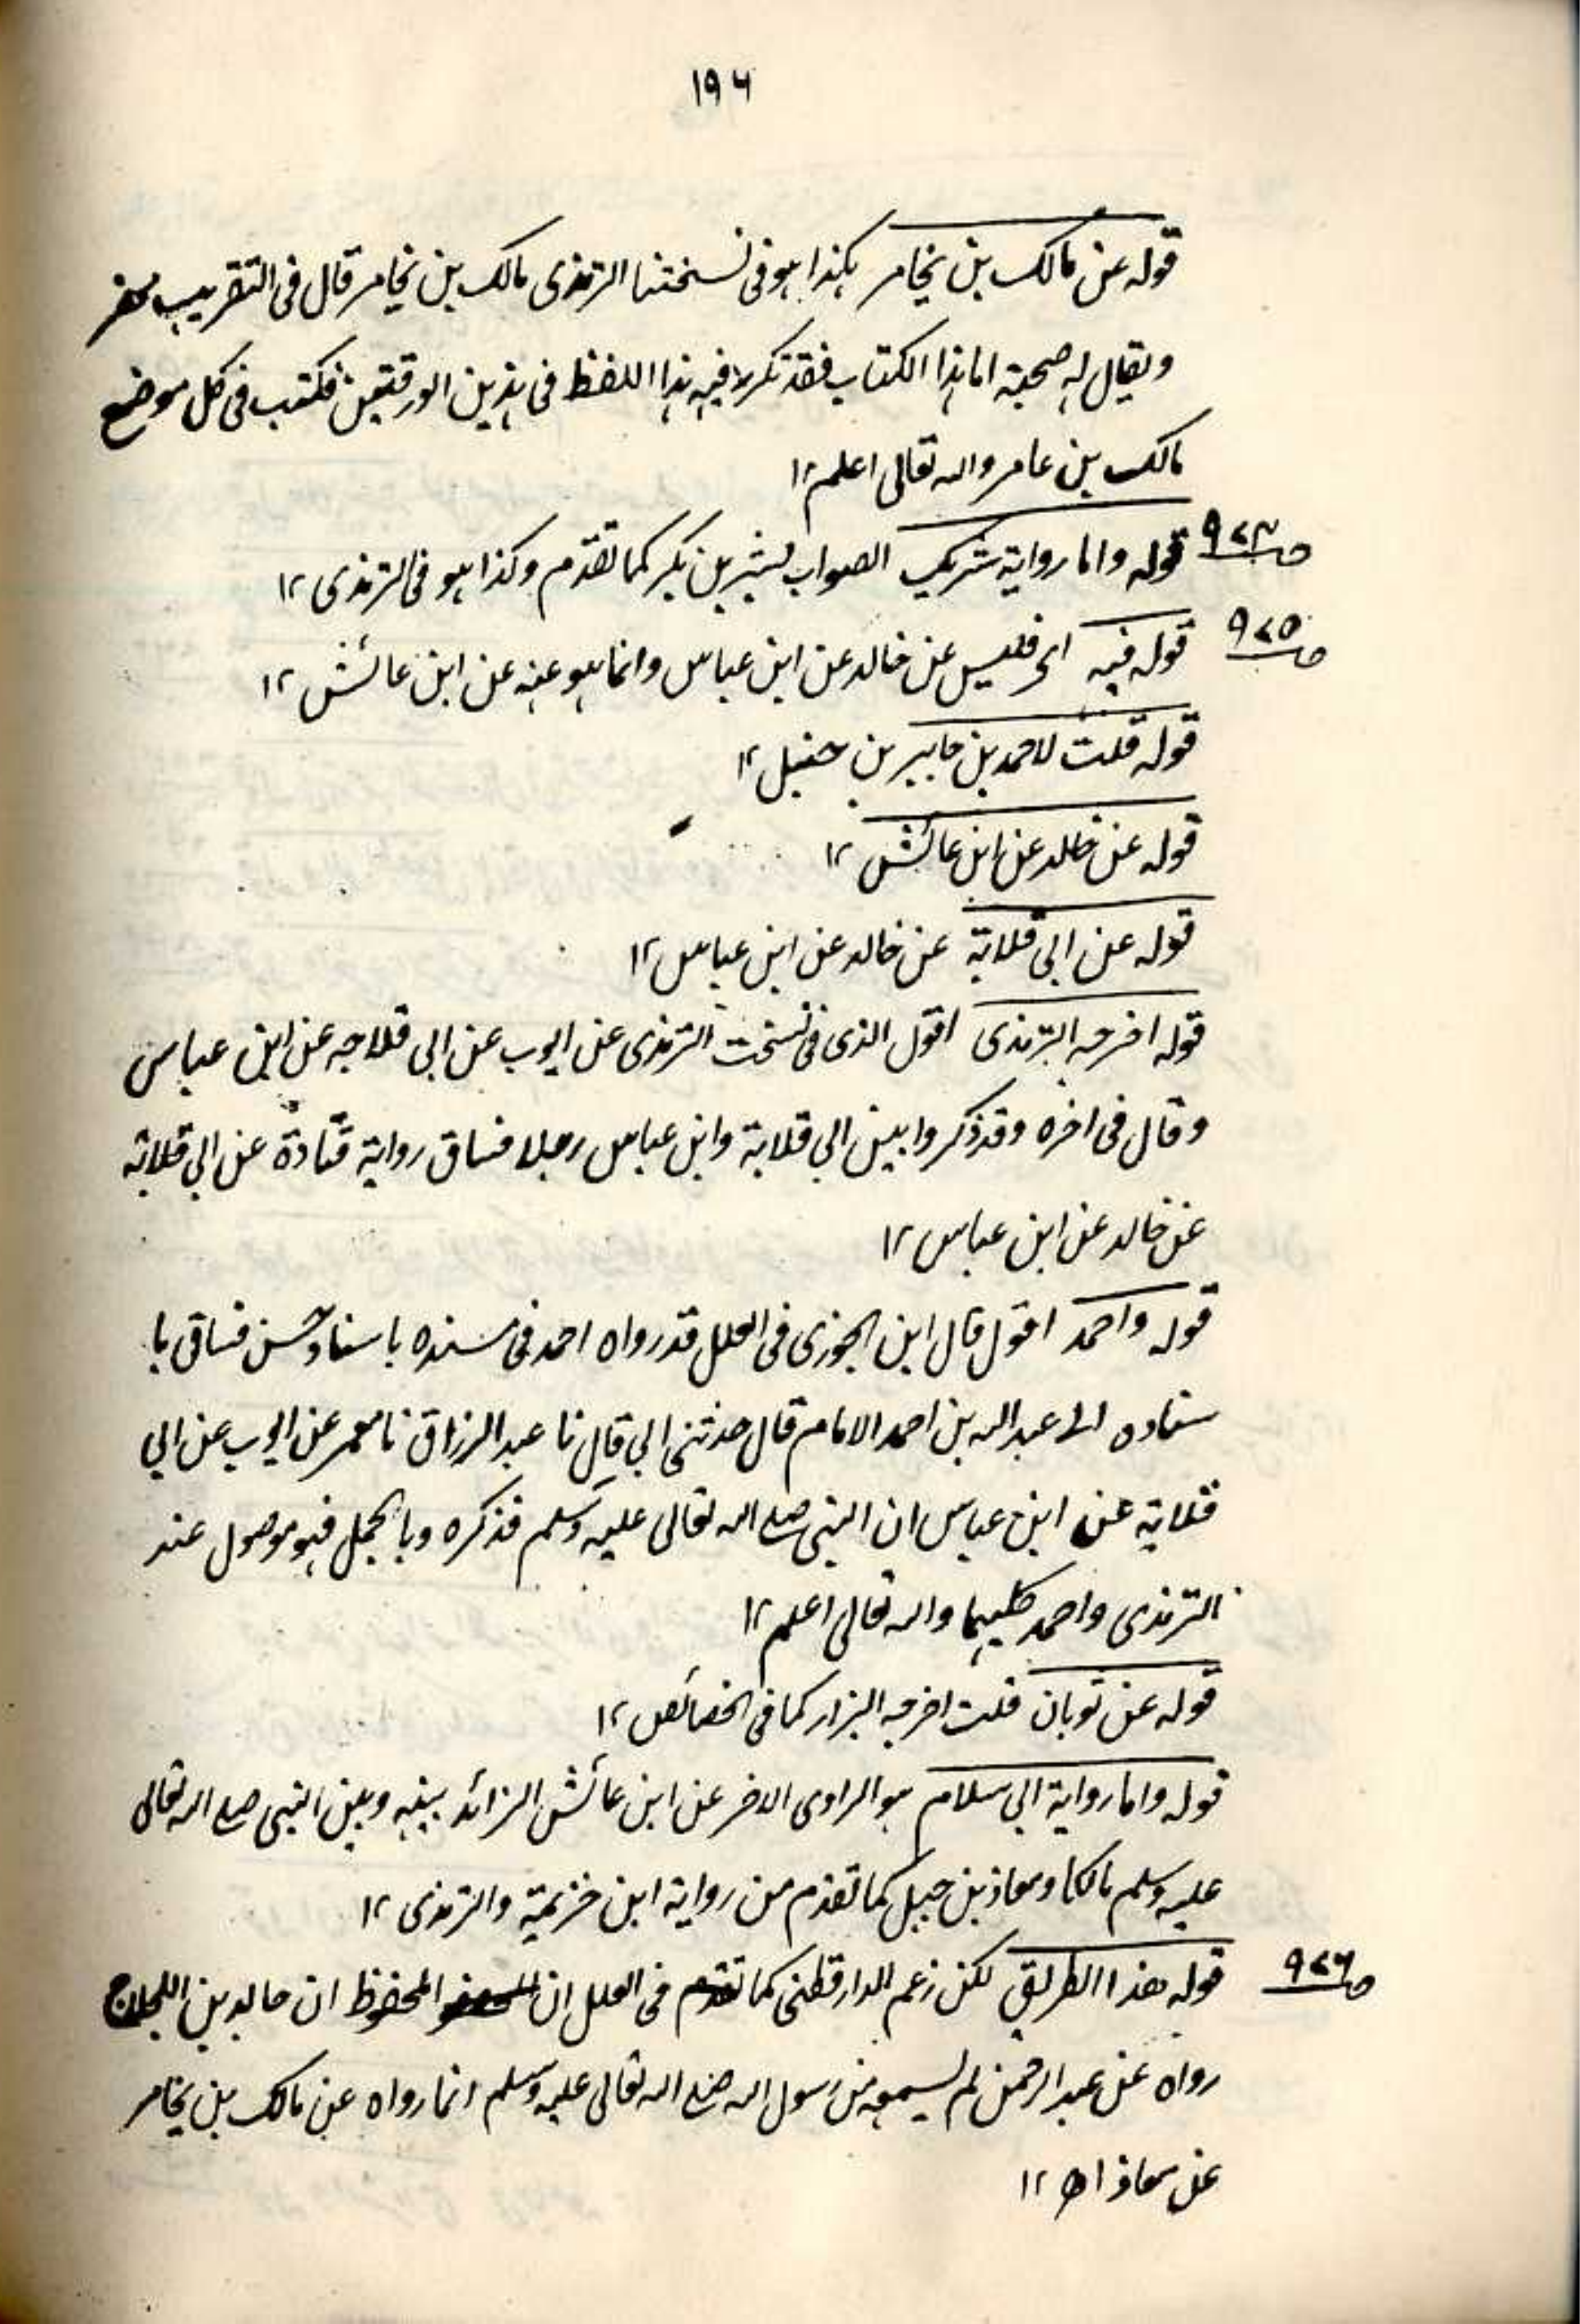 ١٩٦
قوله عن مالك بن يخامر هكذا هو فى نسختنا الترمذى مالك بن يخامر قال فى التقريب مخضر
ويقال له صحبة اما هذا الكتاب فقد تكرر فيه هذا اللفظ فى هذين الورقتين فكتب فى كل موضع
مالك بن عامر والله تعالى اعلم ١٢
ص ٩٢٣ قوله واما رواية شريك الصواب بشر بن بكر كما تقدم وكذا هو فى الترمذى ١٢
ص ٩٢٥ قوله فيه اى فليس عن خالد عن ابن عباس وانما هو عنه عن ابن عائش ١٢
قوله قلت لاحمد بن جابير بن حنبل ١٢
قوله عن خالد عن ابن عائش ١٢
قوله عن ابى قلابة عن خالد عن ابن عباس ١٢
قوله اخرجه الترمذى اقول الذى فى نسخت الترمذى عن ايوب عن ابى قلاجه عن ابن عباس
وقال فى اخره وقد ذكروا بين ابي قلابة وابن عباس رجلا فساق رواية قتادة عن ابي قلابة
عن خالد عن ابن عباس ١٢
قوله واحمد اقول قال ابن الجوزى فى العلل قد رواه احمد فى مسنده باسناد حسن فساق با
سناده الى عبد الله بن احمد الامام قال حدثنى ابي قال نا عبد الرزاق نا معمر عن ايوب عن ابي
قلابة عن ابن عباس ان النبى صلى الله تعالى عليه وسلم فذكره وبالجمل فهو موصول عند
الترمذى واحمد كليهما والله تعالى اعلم ١٢
قوله عن ثوبان قلت اخرجه البزار كما فى الخصائص ١٢
قوله واما رواية ابي سلام هو الراوى الاخر عن ابن عائش الزائد بينه وبين النبى صلى الله تعالى
عليه وسلم مالكا ومعاذ بن جبل كما تقدم من رواية ابن خزيمة والترمذى ١٢
ص ٩٢٦ قوله هذا الطريق لكن زعم الدارقطنى كما تقدم فى العلل ان المحفوظ ان خالد بن اللجلاج
رواه عن عبد الرحمن لم يسمعه من رسول الله صلى الله تعالى عليه وسلم انما رواه عن مالك بن يخامر
عن معاذ اه ١٢